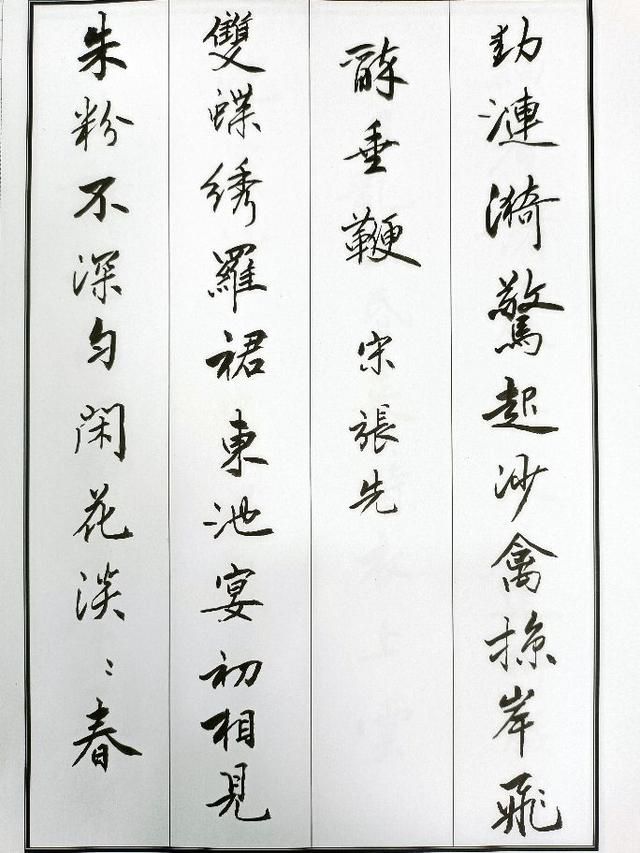 動漣漪驚起沙禽掠岸飛
醉垂鞭 宋 張先
雙蝶綉羅裙東池宴初相見
朱粉不深匀閑花淡〻春